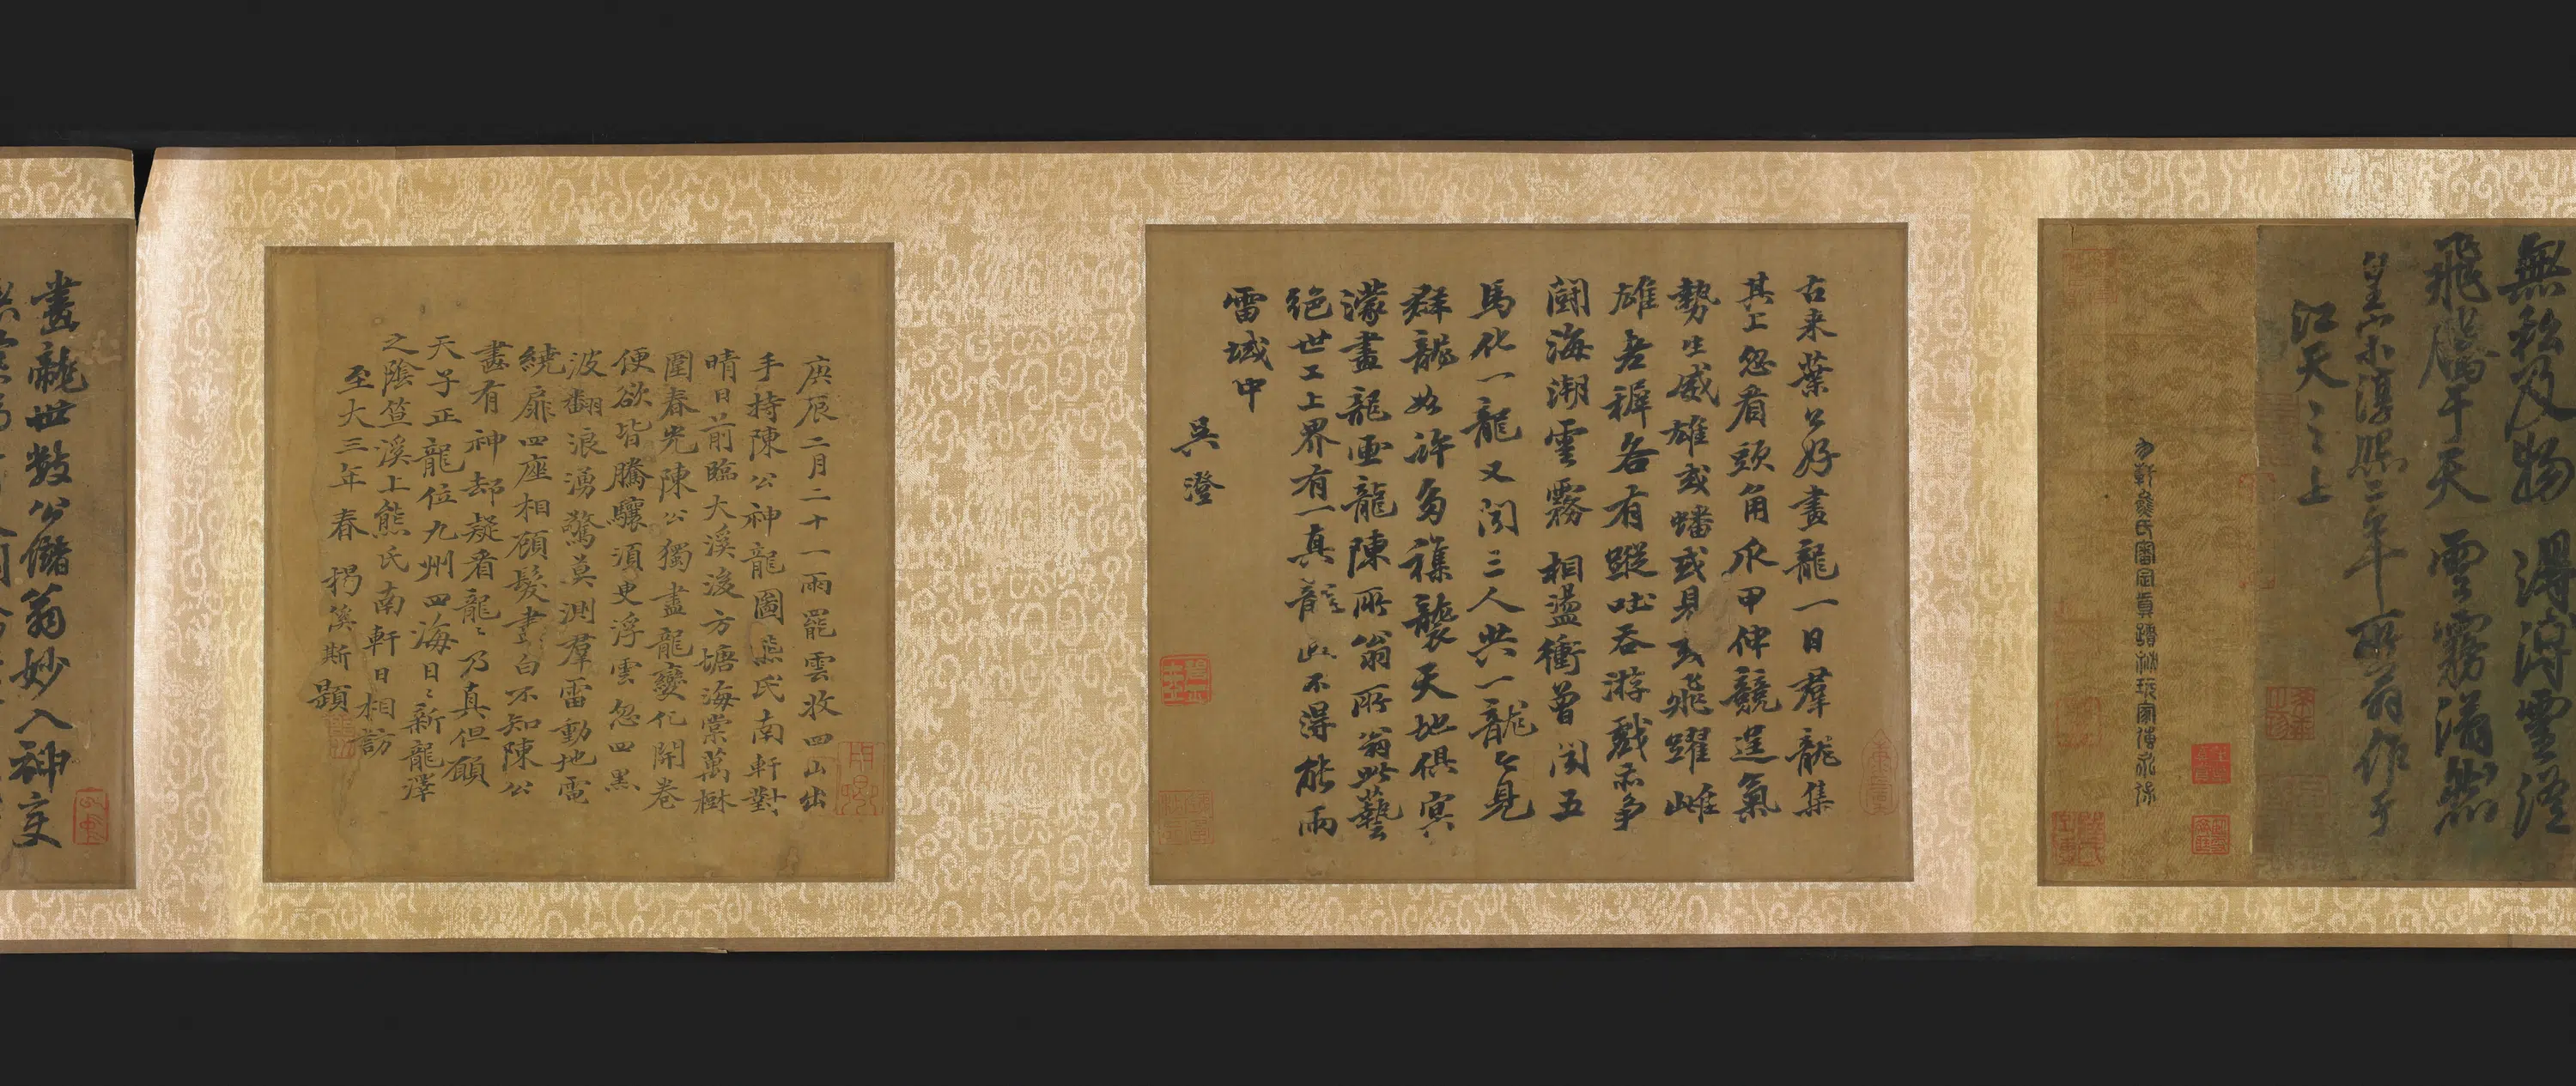 無私及物澤霈霔滂
飛騰乎天雲霧滿然
皇宋淳熙二年所翁作于
江天之上
古来葉公好畫龍一日羣龍集
其上忽看頭角爪甲伸競逞氣
勢生威雄或蟠或見或飛躍雌
雄老穉各有蹤吐吞游戲示爭
鬪海潮雲霧相盪衝曾聞五
馬化一龍又聞三人共一龍今見
群龍如許多襍襲天地俱冥
濛畫龍画龍陳所翁所翁此藝
絶世工上界有一真龍此不得能雨
雷域中
吳澄
庚辰二月二十一雨罷雲收四山出
手持陳公神龍圖熊氏南軒對
晴日前臨大溪後方塘海棠萬樹
圍春光陳公獨畫龍變化開卷
便欲皆騰驤須臾浮雲忽四黑
波翻浪湧驚莫測羣雷動地電
繞扉四座相顧髮盡白不知陳公
畫有神却疑看龍龍乃真但願
天子正龍位九州四海日日新龍澤
之陰笪溪上熊氏南軒日相訪
至大三年春揭傒斯題
畫龍世數公儲翁妙入神变